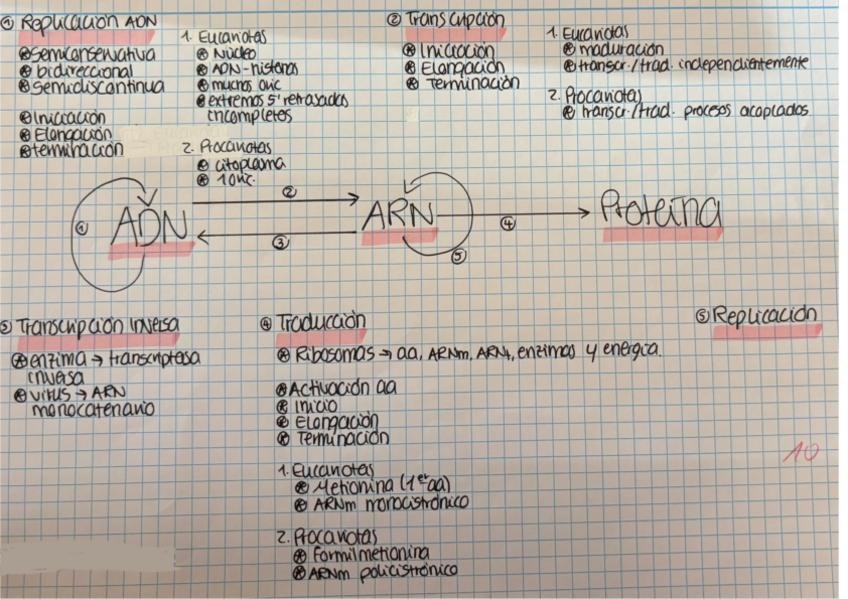 ① Replicación ADN
⊛ semiconservativa
⊛ bidireccional
⊛ semidiscontinua
⊛ Iniciación
⊛ Elongación
⊛ terminación
1. Eucariotas
⊛ Núcleo
⊛ ADN-histonas
⊛ muchos oric
⊛ extremos 5' retrasados
incompletos
2. Procariotas
⊛ citoplasma
⊛ 1 oric.
② Transcripción
⊛ Iniciación
⊛ Elongación
⊛ Terminación
1. Eucariotas
⊛ maduración
⊛ transcr./trad. independientemente
2. Procariotas
⊛ transcr./trad. procesos acoplados
① ADN
②
③
ARN
④
⑤
Proteína
③ Transcripción Inversa
⊛ enzima → transcriptasa
inversa
⊛ virus → ARN
monocatenario
④ Traducción
⊛ Ribosomas → aa, ARNm, ARNt, enzimas y energía.
⊛ Activación aa
⊛ Inicio
⊛ Elongación
⊛ Terminación
1. Eucariotas
⊛ Metionina (1er aa)
⊛ ARNm monocistrónico
2. Procariotas
⊛ Formilmetionina
⊛ ARNm policistrónico
⑤ Replicación
10